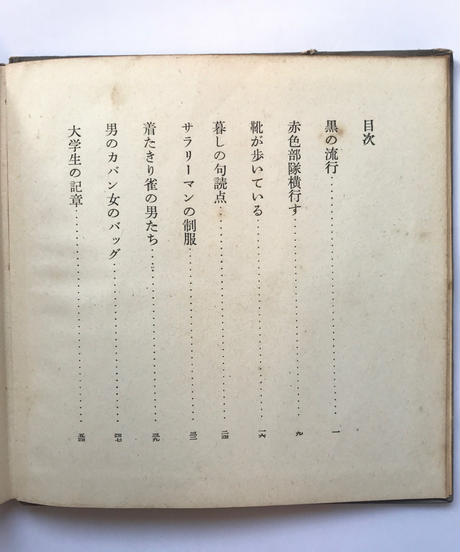 目次
黒の流行……………………一
赤色部隊横行す……………………九
靴が歩いている……………………一六
暮しの句読点……………………二四
サラリーマンの制服……………………三二
着たきり雀の男たち……………………三九
男のカバン女のバッグ……………………四七
大学生の記章……………………五四